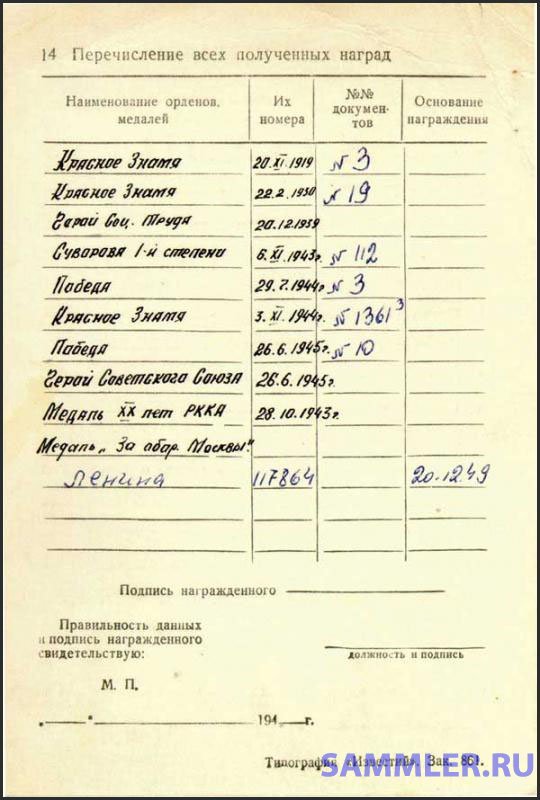 14 Перечисление всех полученных наград
Наименование орденов, медалей | Их номера | №№ докумен-тов | Основание награждения
Красное Знамя 20.XI.1919 № 3
Красное Знамя 22.2.1930 № 19
Герой Соц. Труда 20.12.1939
Суворова 1-й степени 6.XI.1943г. № 112
Победа 29.7.1944г. № 3
Красное Знамя 3.XI.1944г. № 1361 3
Победа 26.6.1945г. № 10
Герой Советского Союза 26.6.1945г.
Медаль XX лет РККА 28.10.1943г.
Медаль „За обор. Москвы"
Ленина 117864 20.12.49
Подпись награжденного
Правильность данных
и подпись награжденного
свидетельствую:
должность и подпись
М. П.
" " 194 г.
Типография «Известий». Зак. 861.
SAMMLER.RU